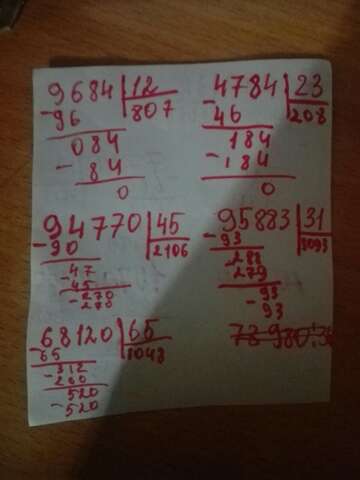 9684 | 12
-96 807
084
- 84
0
4784 | 23
-46 208
184
-184
0
94770 | 45
-90 2106
47
-45
-270
270
95883 | 31
-93 3093
-288
279
93
-93
68120 | 65
-65 1048
-312
-260
520
-520